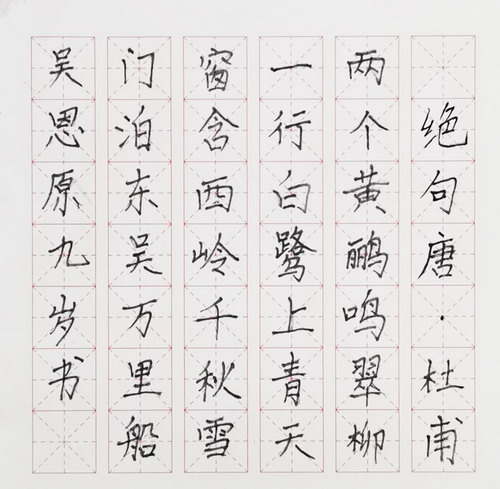 绝句唐·杜甫
两个黄鹂鸣翠柳
一行白鹭上青天
窗含西岭千秋雪
门泊东吴万里船
吴恩原九岁书